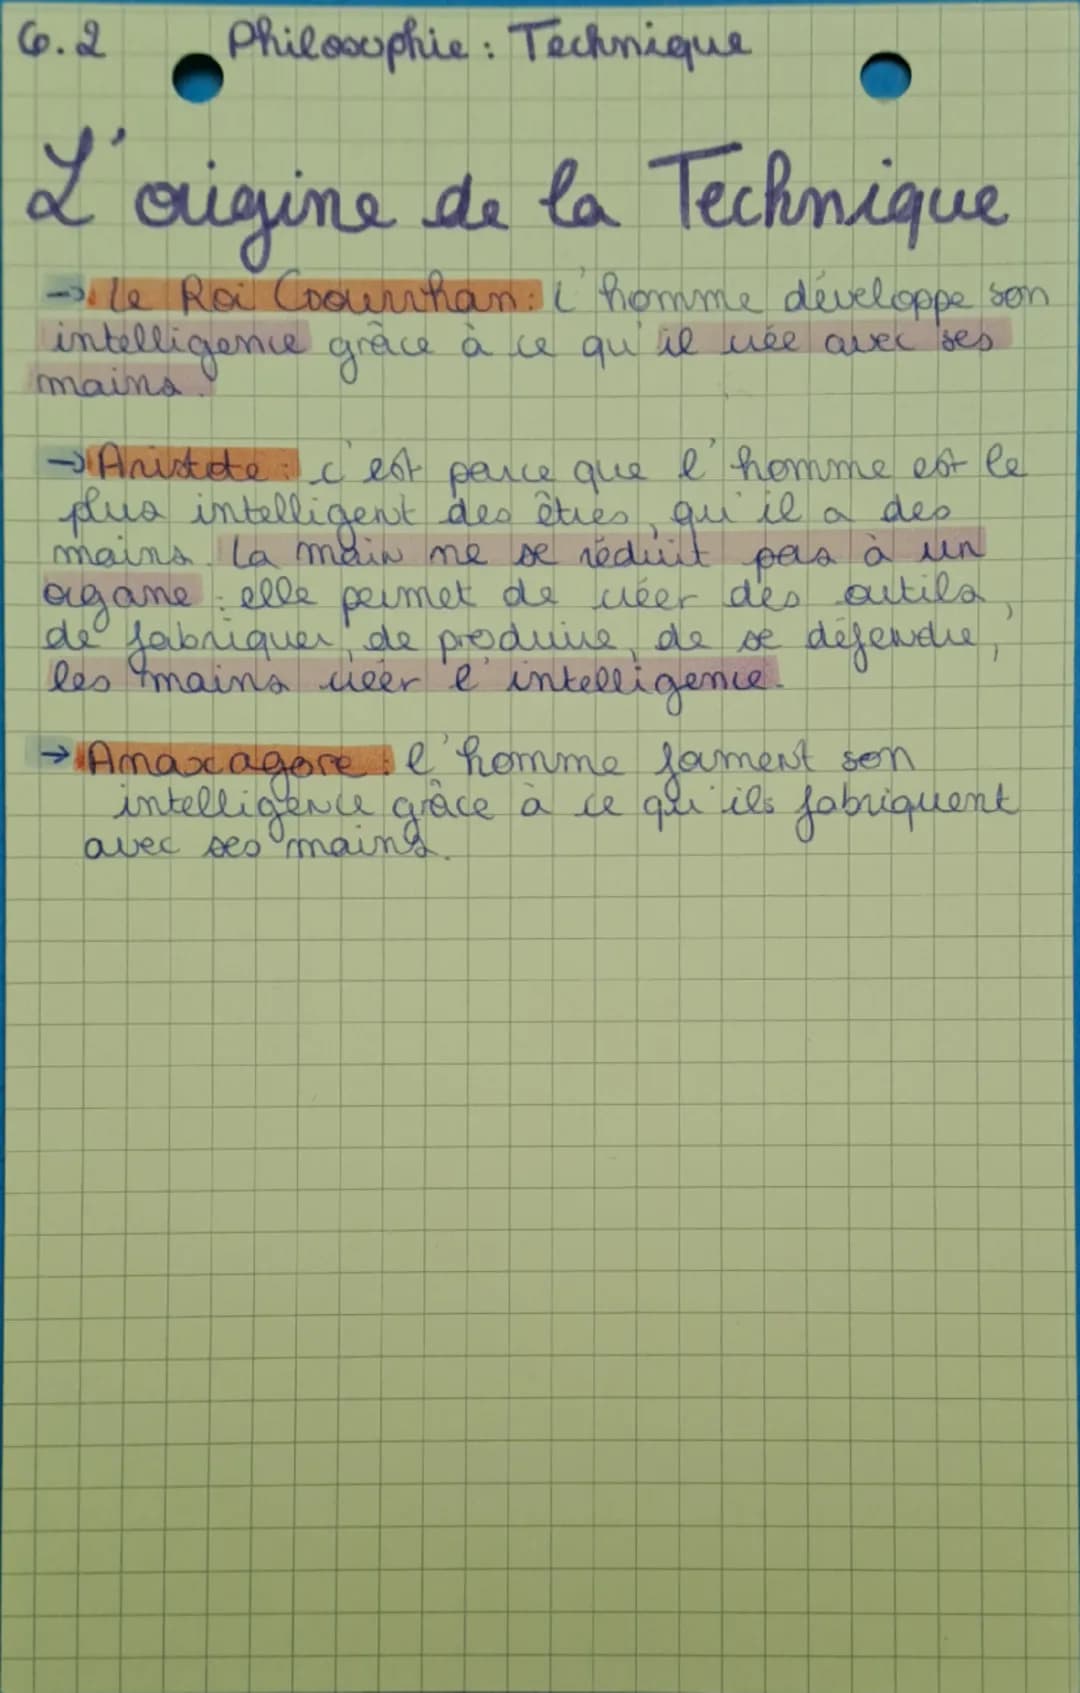 6.2 Philosophie : Technique
L'origine de la Technique
→ Le Roi Coourrhan : l'homme développe son
intelligence grâce à ce qu'il crée avec ses
mains.
→ Aristote : c'est parce que l'homme est le
plus intelligent des êtres, qu'il a des
mains. La main ne se réduit pas à un
organe : elle permet de créer des outils,
de fabriquer, de produire, de se défendre,
les mains créer l'intelligence.
→ Anaxagore : l'homme forment son
intelligence grâce à ce qu'ils fabriquent
avec ses mains.